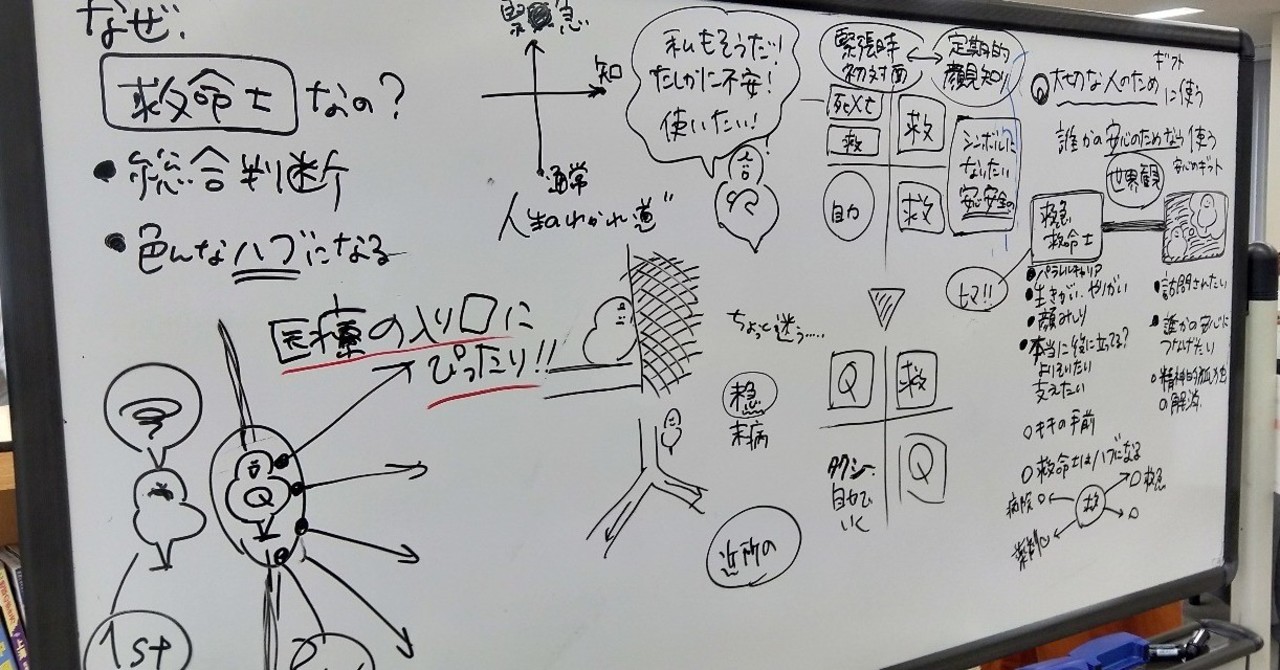 なぜ、
救命士 なの?
・総合判断
・色んなハブになる
医療の入り口に
ぴったり!!
Q
1st
緊急
知
通常
人生のわかれ道
私もそうだ!
たしかに不安!
使いたい!
緊張時
初対面
定期的
顔見知り
救
救
自力
救
シンボルに
なりたい
安心安全の
ちょっと迷う……
未病
近所の
Q
救
タクシー
自力で
いく
Q
ヒマ!!
ギフト
Q 大切な人のために使う
誰かの安心のためなら使う
安心のギフト
世界観
救急
救命士
・パラレルキャリア
・生きがい、やりがい
・顔みしり
・本当に役に立ってる?
よりそいたい
支えたい
○キキの手前
○救命士はハブになる
病院
救
救急
薬剤
・訪問されたい
・誰かの安心に
つなげたい
○精神的孤独
の解消